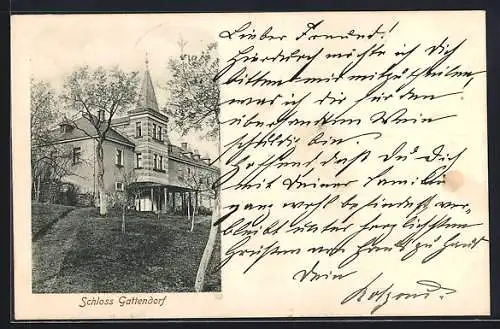 Lieber Freund!
Hierdurch möchte ich Dich
bitten mir mitzutheilen,
was ich Dir für den
übersandten Wein
schuldig bin.
Hoffend daß Du Dich
mit Deiner Familie
ganz wohl befindest ver-
bleibt unter herzlichsten
Grüßen von Haus zu Haus
Dein
Schloss Gattendorf